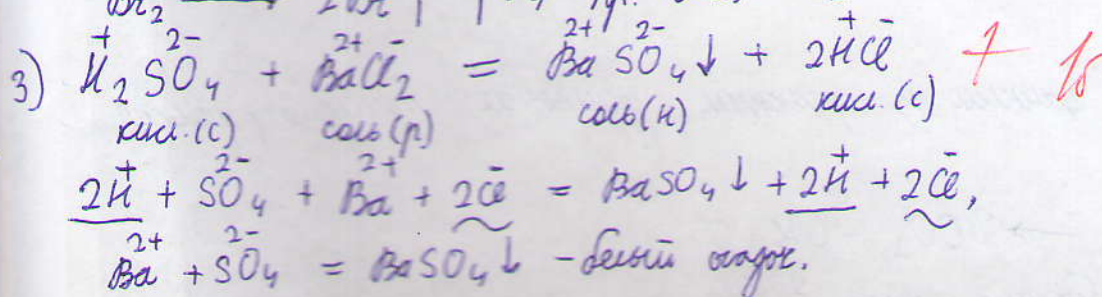 Br₂
3) H⁺₂SO₄²⁻ + Ba²⁺Cl⁻₂ = Ba²⁺SO₄²⁻↓ + 2H⁺Cl⁻ + 1б
кисл.(с) соль(р) соль(н) кисл.(с)
2H⁺ + SO₄²⁻ + Ba²⁺ + 2Cl⁻ = BaSO₄↓ + 2H⁺ + 2Cl⁻,
Ba²⁺ + SO₄²⁻ = BaSO₄↓ - белый осадок.